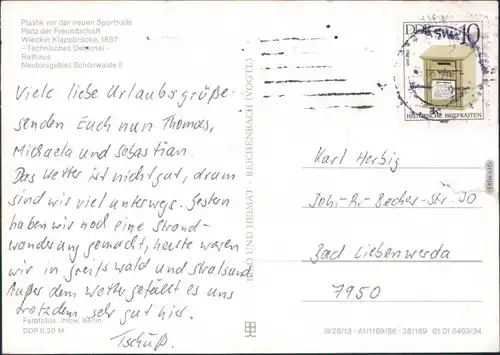 Plastik vor der neuen Sporthalle
Platz der Freundschaft
Wiecker Klappbrücke, 1887
-Technisches Denkmal-
Rathaus
Neubaugebiet Schönwalde II
DDR 10
HISTORISCHE BRIEFKASTEN
Viele liebe Urlaubsgrüße
senden Euch nun Thomas,
Michaela und Sebastian.
Das Wetter ist nicht gut, drum
sind wir viel unterwegs. Gestern
haben wir noch eine Strand-
wanderung gemacht, heute waren
wir in Greifswald und Stralsund.
Außer dem Wetter gefällt es uns
trotzdem sehr gut hier.
Tschüß.
BILD UND HEIMAT · REICHENBACH (VOGTL)
Karl Herbig
Joh.-R.-Becher-Str. 30
Bad Liebenwerda
7950
Farbfotos: Ihlow, Berlin
DDR 0,20 M
III/26/13 · A1/1169/86 · 381169 01 01 0463/34